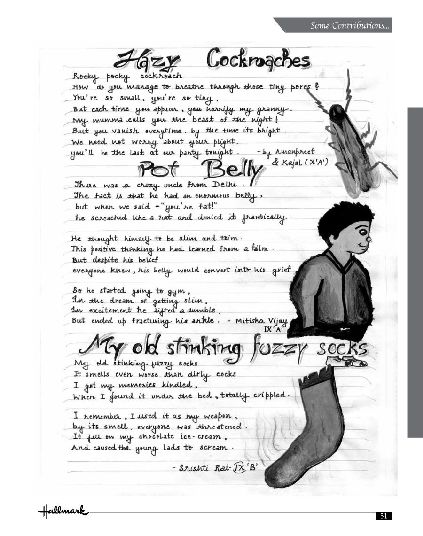 Some Contributions...
Hazy Cockroaches
Rocky pocky cockroach
How do you manage to breathe through those tiny pores?
You're so small, you're so tiny.
But each time you appear, you horrify my granny.
My mumma calls you the beast of the night!
But you vanish everytime, by the time its bright
We need not worry about your plight.
you'll be the last at our party tonight. - by Amanpreet
& Kajal (X'A')
Pot Belly
There was a crazy uncle from Delhi.
The fact is that he had an enormous belly,
but when we said - "you're fat!"
he screeched like a rat and denied it frantically.
He thought himself to be slim and trim.
This positive thinking he had learned from a film.
But despite his belief
everyone knew, his belly would convert into his grief.
So he started going to gym,
In the dream of getting slim,
In excitement he lifted a dumble,
But ended up fracturing his ankle. - Mitisha Vijay
IX 'A'
My old stinking fuzzy socks
My old stinking fuzzy socks
It smells even worse than dirty cocks
I got my memories kindled,
When I found it under the bed, totally crippled.
I remember, I used it as my weapon,
by its smell, everyone was threatened.
It fell on my chocolate ice-cream,
And caused the young lads to scream.
- Srishti Rai 'B'
Hallmark
51